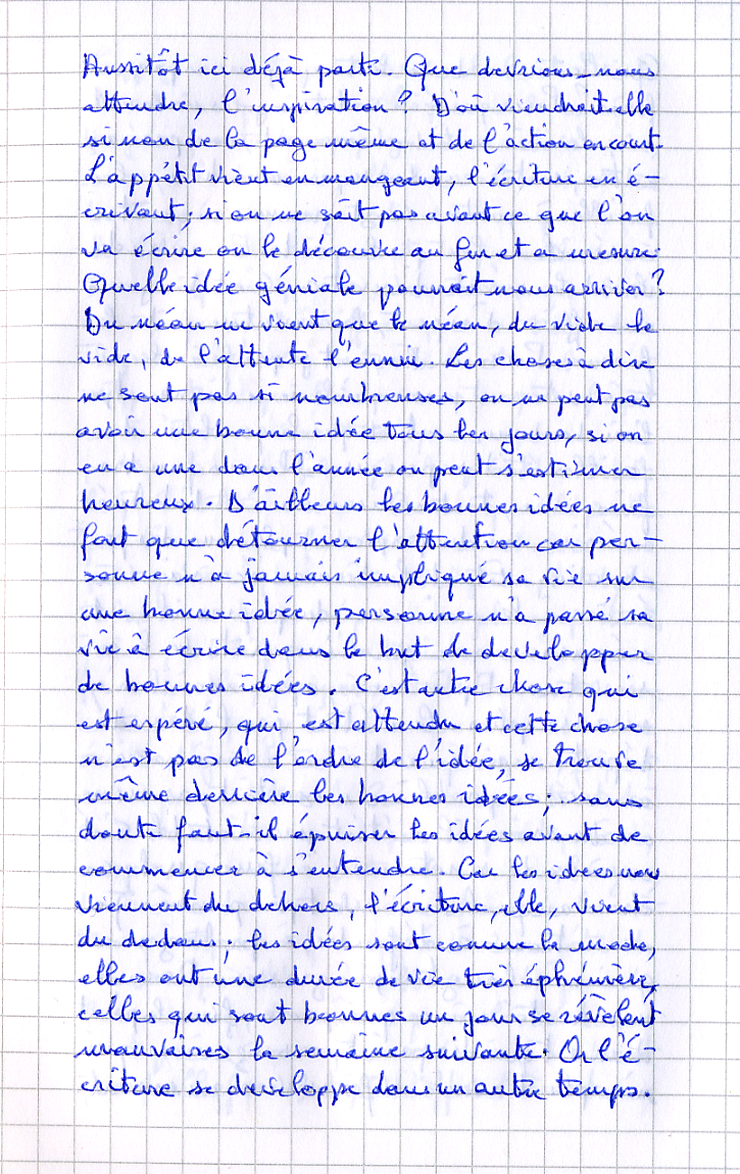 Aussitôt ici déjà parti. Que devrions-nous
attendre, l'inspiration ? D'où viendrait-elle
sinon de la page même et de l'action en court.
L'appétit vient en mangeant, l'écriture en é-
crivant ; si on ne sait pas avant ce que l'on
va écrire on le découvre au fur et a mesure.
Quelle idée géniale pourrait nous arriver ?
Du néan ne vient que le néan, du vide le
vide, de l'attente l'ennui. Les choses à dire
ne sont pas si nombreuses, on ne peut pas
avoir une bonne idée tous les jours, si on
en a une dans l'année on peut s'estimer
heureux. D'ailleurs les bonnes idées ne
font que détourner l'attention car per-
sonne n'a jamais impliqué sa vie sur
une bonne idée, personne n'a passé sa
vie à écrire dans le but de developper
de bonnes idées. C'est autre chose qui
est espéré, qui est attendu et cette chose
n'est pas de l'ordre de l'idée, se trouve
même derrière les bonnes idées ; sans
doute faut-il épuiser les idées avant de
commencer à s'entendre. Car les idées nous
viennent du dehors, l'écriture, elle, vient
du dedans ; les idées sont comme la mode,
elles ont une durée de vie très éphémère,
celles qui sont bonnes un jour se révèlent
mauvaises la semaine suivante. Or l'é-
criture se developpe dans un autre temps.